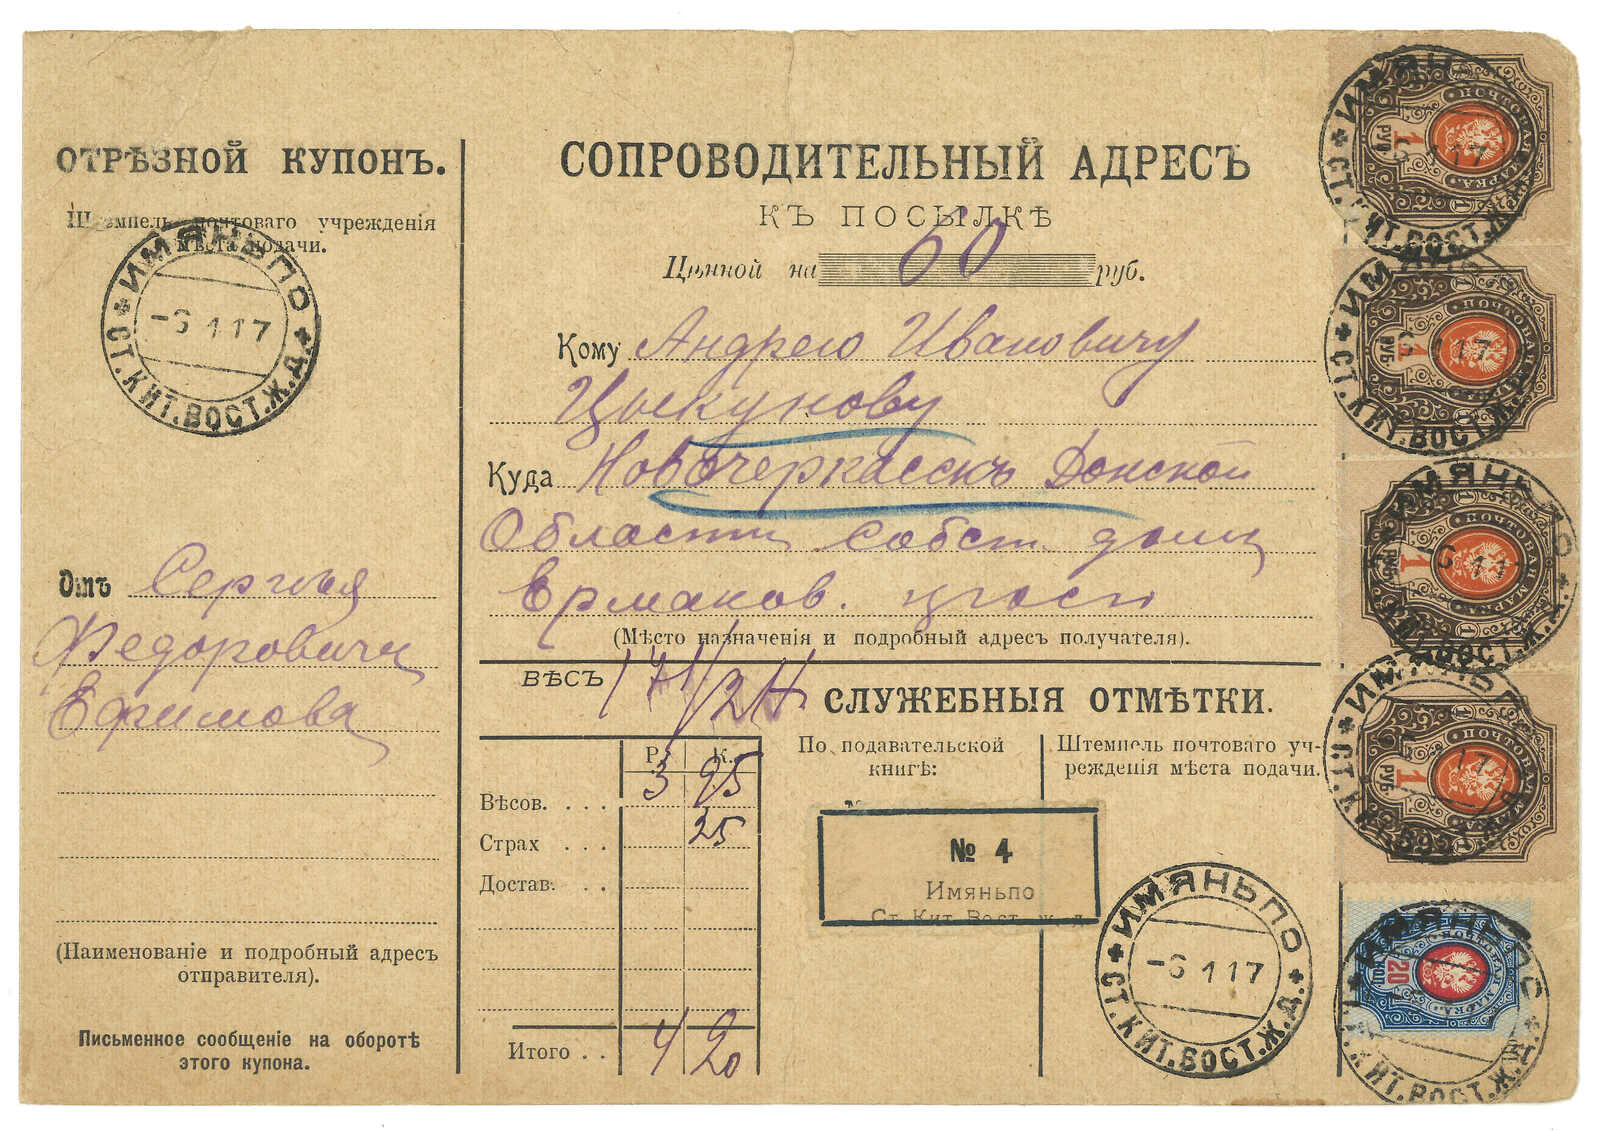 ОТРѢЗНОЙ КУПОНЪ.
Штемпель почтоваго учрежденія
мѣста подачи.
ИМЯНЬПО
-6 1 17
СТ.КИТ.ВОСТ.Ж.Д.
Отъ Сергѣя
Федоровича
Ефимова
(Наименованіе и подробный адресъ
отправителя).
Письменное сообщеніе на оборотѣ
этого купона.
СОПРОВОДИТЕЛЬНЫЙ АДРЕСЪ
КЪ ПОСЫЛКѢ
Цѣнной на 60 руб.
Кому Андрею Ивановичу
Цыкунову
Куда Новочеркасскъ Донской
Области собст. домъ
Ермаков.
(Мѣсто назначенія и подробный адресъ получателя).
ВѢСЪ 17 1/2
Р. К.
Вѣсов. . . . 3 95
Страх . . . 25
Достав. . .
Итого . . 4 20
СЛУЖЕБНЫЯ ОТМѢТКИ.
По подавательской
книгѣ:
№ 4
Имяньпо
Ст. Кит. Вост. ж. д.
Штемпель почтоваго уч-
режденія мѣста подачи.
ИМЯНЬПО
-6 1 17
СТ.КИТ.ВОСТ.Ж.Д.
ИМЯНЬПО
СТ.КИТ.ВОСТ.Ж.Д.
ПОЧТОВАЯ МАРКА
1 РУБ.
ИМЯНЬПО
СТ.КИТ.ВОСТ.Ж.Д.
ПОЧТОВАЯ МАРКА
1 РУБ.
ИМЯНЬПО
СТ.КИТ.ВОСТ.Ж.Д.
ПОЧТОВАЯ МАРКА
1 РУБ.
ИМЯНЬПО
СТ.КИТ.ВОСТ.Ж.Д.
ПОЧТОВАЯ МАРКА
1 РУБ.
ИМЯНЬПО
СТ.КИТ.ВОСТ.Ж.Д.
ПОЧТОВАЯ МАРКА
20 КОП.